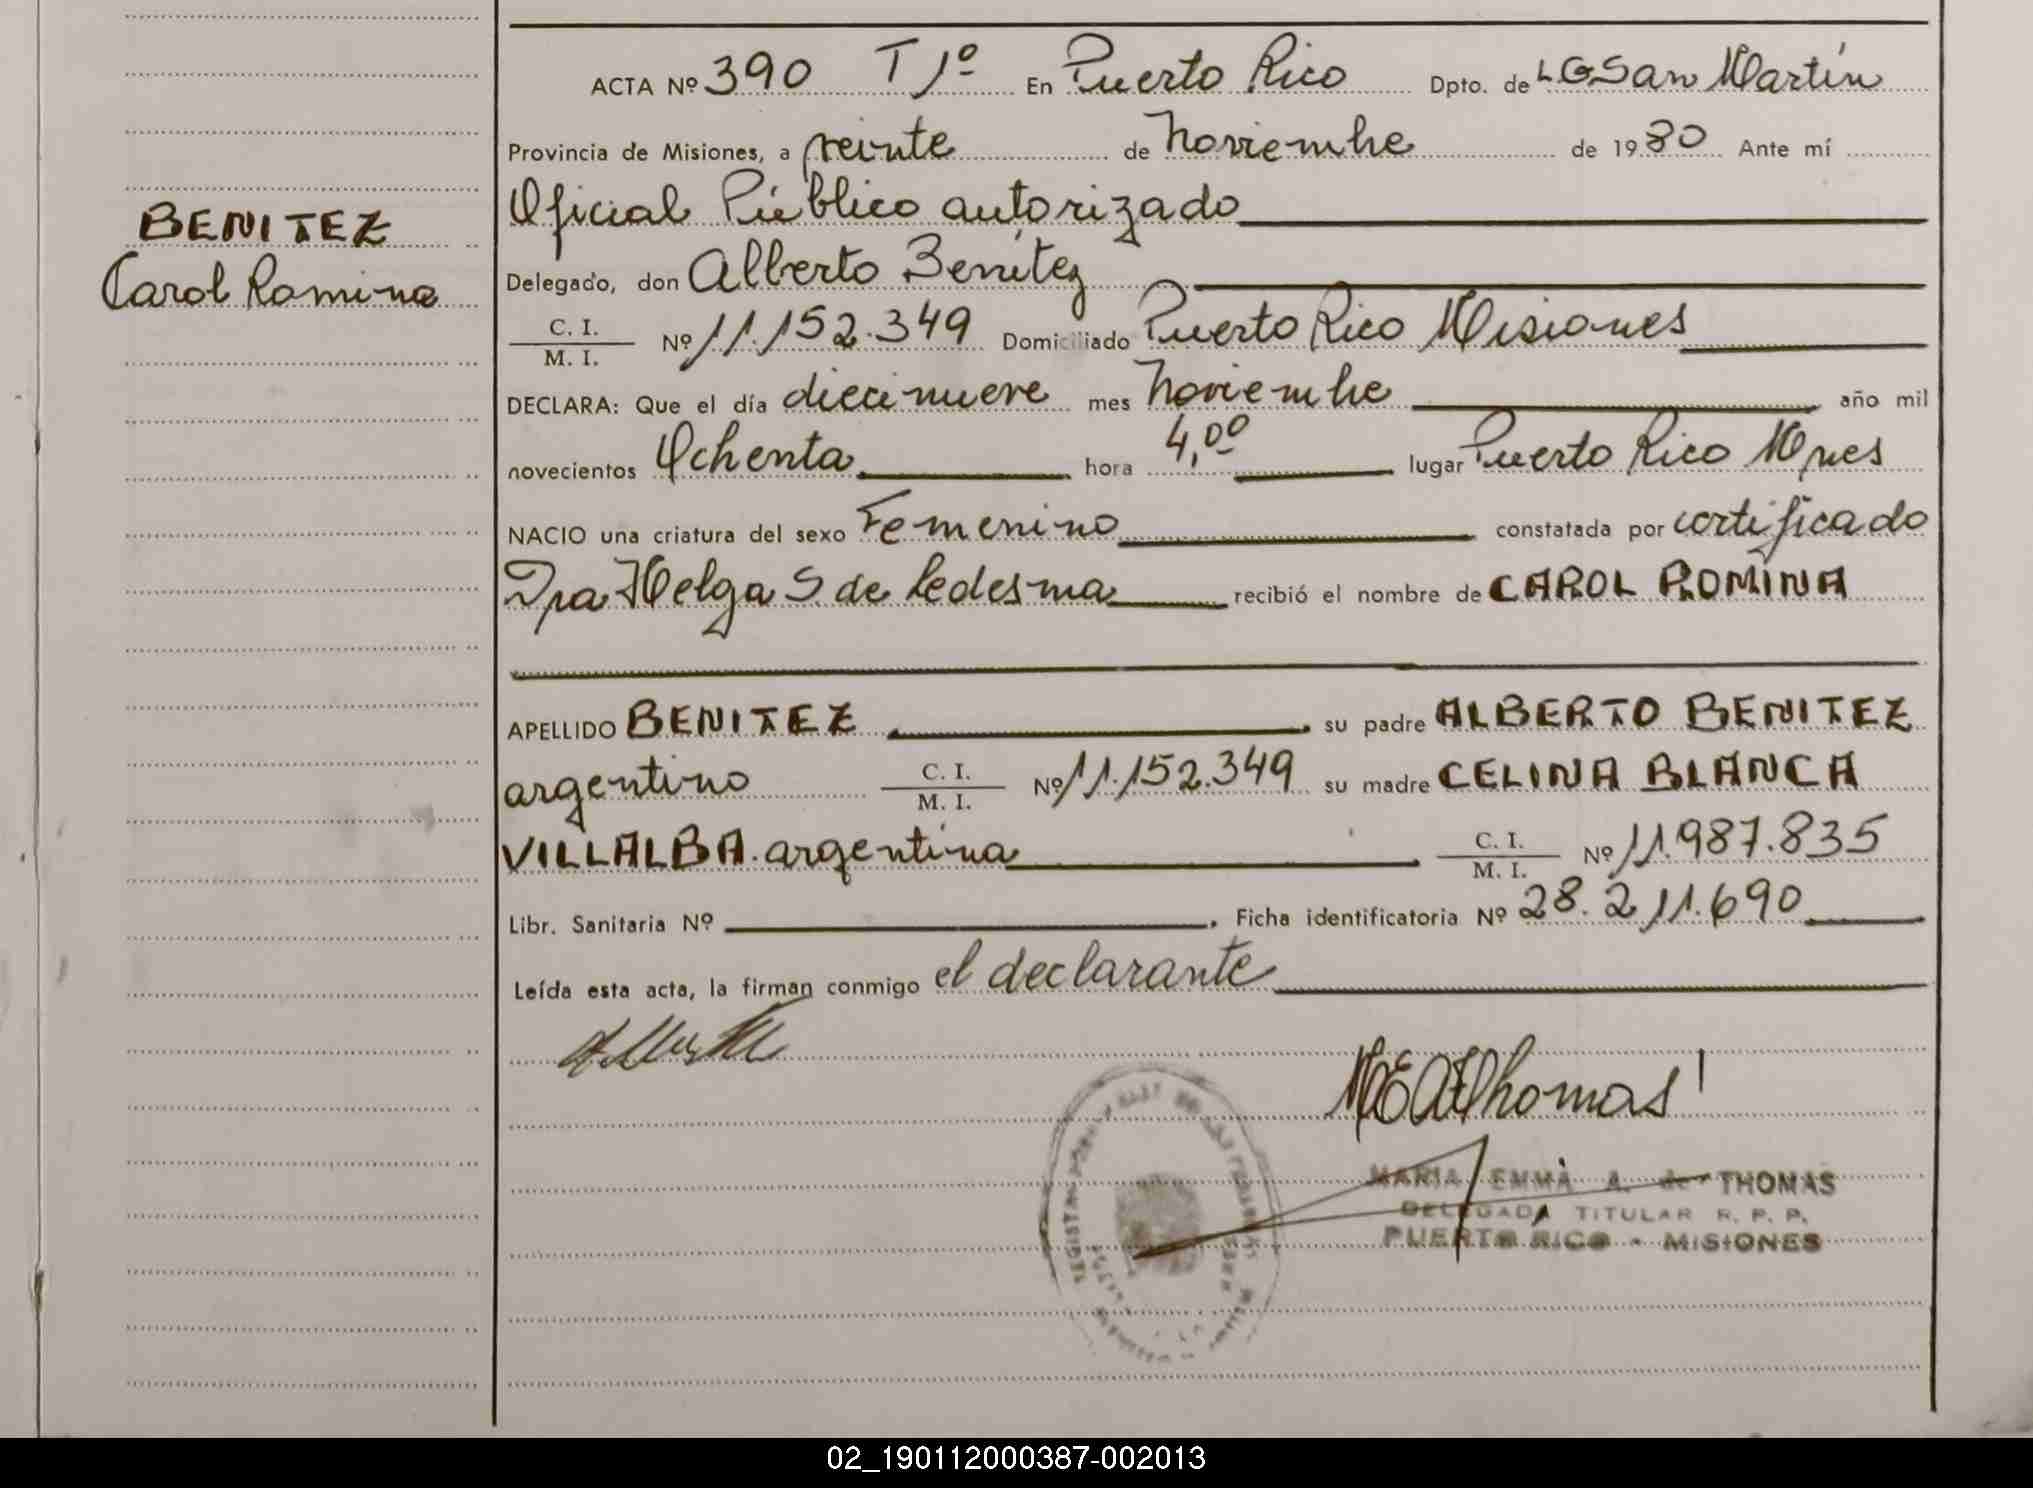 ACTA Nº 390 T 1º En Puerto Rico Dpto. de L G San Martín
Provincia de Misiones, a veinte de Noviembre de 1980 Ante mí
Oficial Público autorizado
BENITEZ
Carol Romina
Delegado, don Alberto Benítez
C. I.
M. I. Nº 11.152.349 Domiciliado Puerto Rico Misiones
DECLARA: Que el día diecinueve mes Noviembre año mil
novecientos Ochenta hora 4,00 lugar Puerto Rico Mnes
NACIO una criatura del sexo Femenino constatada por certificado
Dra Helga S. de Ledesma recibió el nombre de CAROL ROMINA
APELLIDO BENITEZ su padre ALBERTO BENITEZ
argentino C. I. M. I. Nº 11.152.349 su madre CELINA BLANCA
VILLALBA. argentina C. I. M. I. Nº 11.987.835
Libr. Sanitaria Nº . Ficha identificatoria Nº 28.211.690
Leída esta acta, la firman conmigo el declarante
MEAThomas
MARIA EMMA A. de THOMAS
DELEGADA TITULAR R. P. P.
PUERTO RICO - MISIONES
02_190112000387-002013